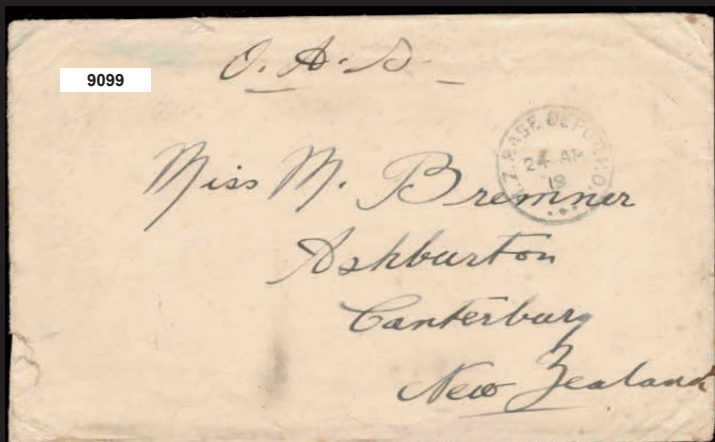 O. A. S.
9099
N.Z. BASE DEPOT P.O.
24 AP
19
Miss M. Bremner
Ashburton
Canterbury
New Zealand